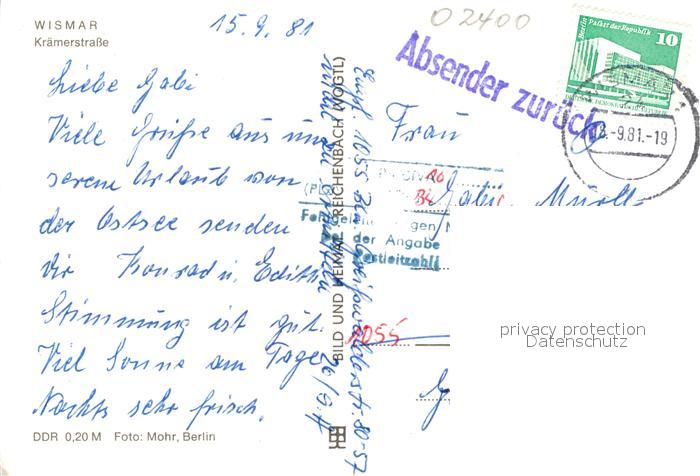 WISMAR
Krämerstraße
15.9.81
Liebe Gabi
Viele Grüße aus un-
serem Urlaub von
der Ostsee senden
Dir Konrad u. Edith
Stimmung ist gut.
Viel Sonne am Tage
Nachts sehr frisch.
DDR 0,20 M Foto: Mohr, Berlin
BILD UND HEIMAT REICHENBACH (VOGTL)
Empf. 1055 Bln. Greifswalderstr. 80-57
nicht zu
02400
Absender zurück
Berlin Palast der Republik
10
-9.81.-19
Frau
Gabi
der Angabe
Postleitzahl
1055
privacy protection
Datenschutz